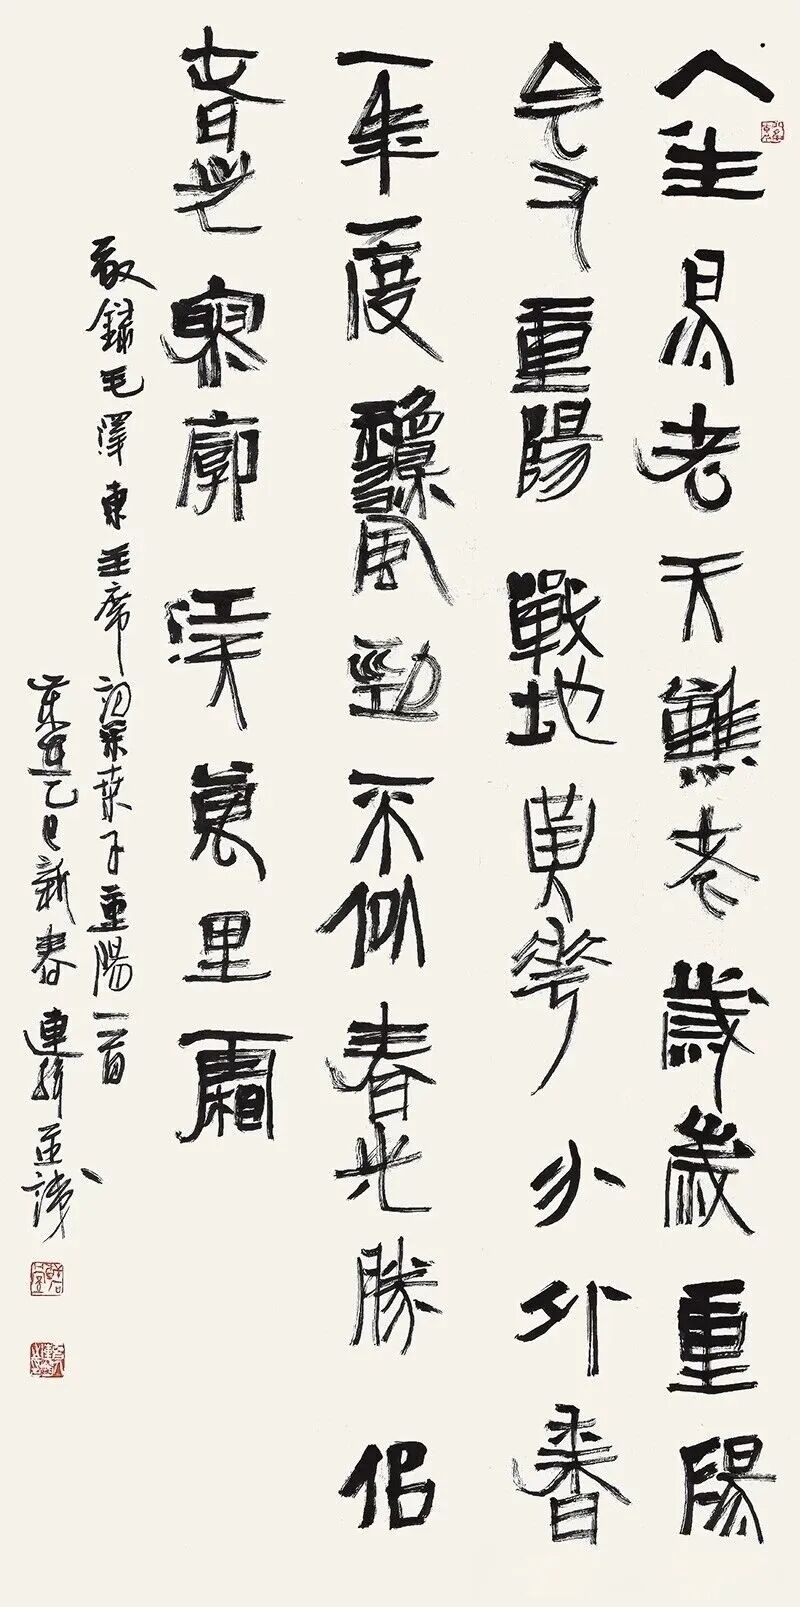 人生易老天難老歲歲重陽
今又重陽戰地黃花分外香
一年一度秋風勁不似春光勝佀
春光寥廓江天萬里霜
敬錄毛澤東主席詞采桑子重陽一首
乙巳新春連輯並識